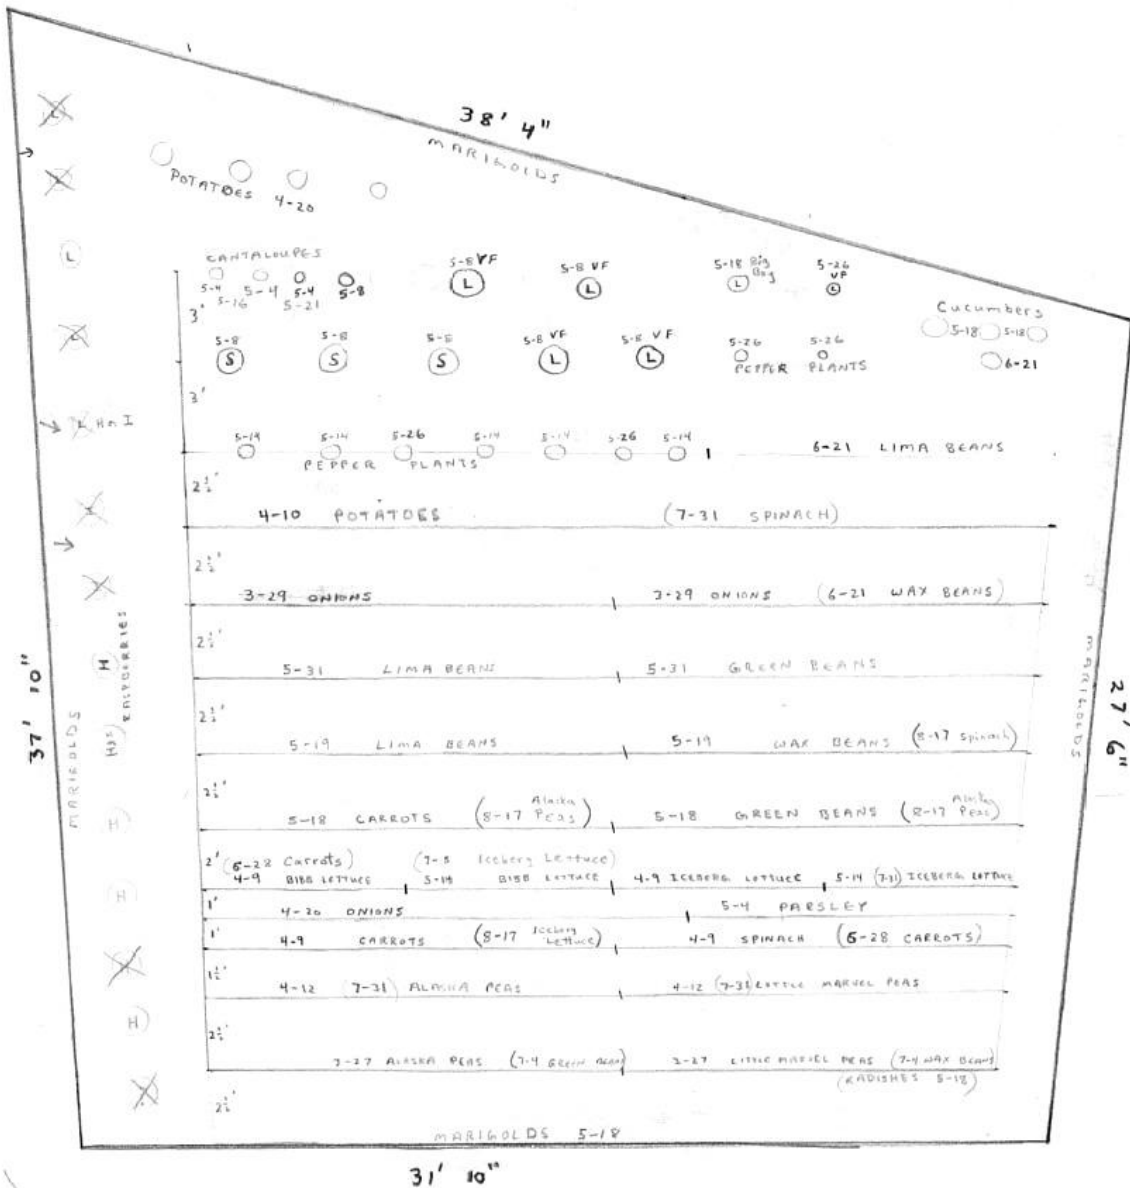 38' 4"
MARIGOLDS
POTATOES 4-20
L
CANTALOUPES
5-4 5-4 5-4 5-8
5-16 5-21
5-8 VF L
5-8 VF L
5-18 Big Boy L
5-26 VF L
Cucumbers
5-18 5-18
6-21
3'
5-8 S
5-8 S
5-8 S
5-8 VF L
5-8 VF L
5-26 5-26
PEPPER PLANTS
3'
5-14 5-14 5-26 5-14 5-14 5-26 5-14
PEPPER PLANTS
6-21 LIMA BEANS
2½'
4-10 POTATOES (7-31 SPINACH)
2½'
3-29 ONIONS 3-29 ONIONS (6-21 WAX BEANS)
2½'
5-31 LIMA BEANS 5-31 GREEN BEANS
2½'
5-19 LIMA BEANS 5-19 WAX BEANS (8-17 Spinach)
2½'
5-18 CARROTS (8-17 Alaska Peas) 5-18 GREEN BEANS (8-17 Alaska Peas)
2' (6-28 Carrots) (7-5 Iceberg Lettuce)
4-9 BIBB LETTUCE 5-14 BIBB LETTUCE 4-9 ICEBERG LETTUCE 5-14 (7-31) ICEBERG LETTUCE
1'
4-20 ONIONS 5-4 PARSLEY
1'
4-9 CARROTS (8-17 Iceberg Lettuce) 4-9 SPINACH (6-28 CARROTS)
1½'
4-12 (7-31) ALASKA PEAS 4-12 (7-31) LITTLE MARVEL PEAS
2½'
3-27 ALASKA PEAS (7-4 GREEN BEANS) 3-27 LITTLE MARVEL PEAS (7-4 WAX BEANS)
(RADISHES 5-18)
2½'
MARIGOLDS 5-18
31' 10"
37' 10"
MARIGOLDS
RASPBERRIES
H
H
H
H
MARIGOLDS
27' 6"